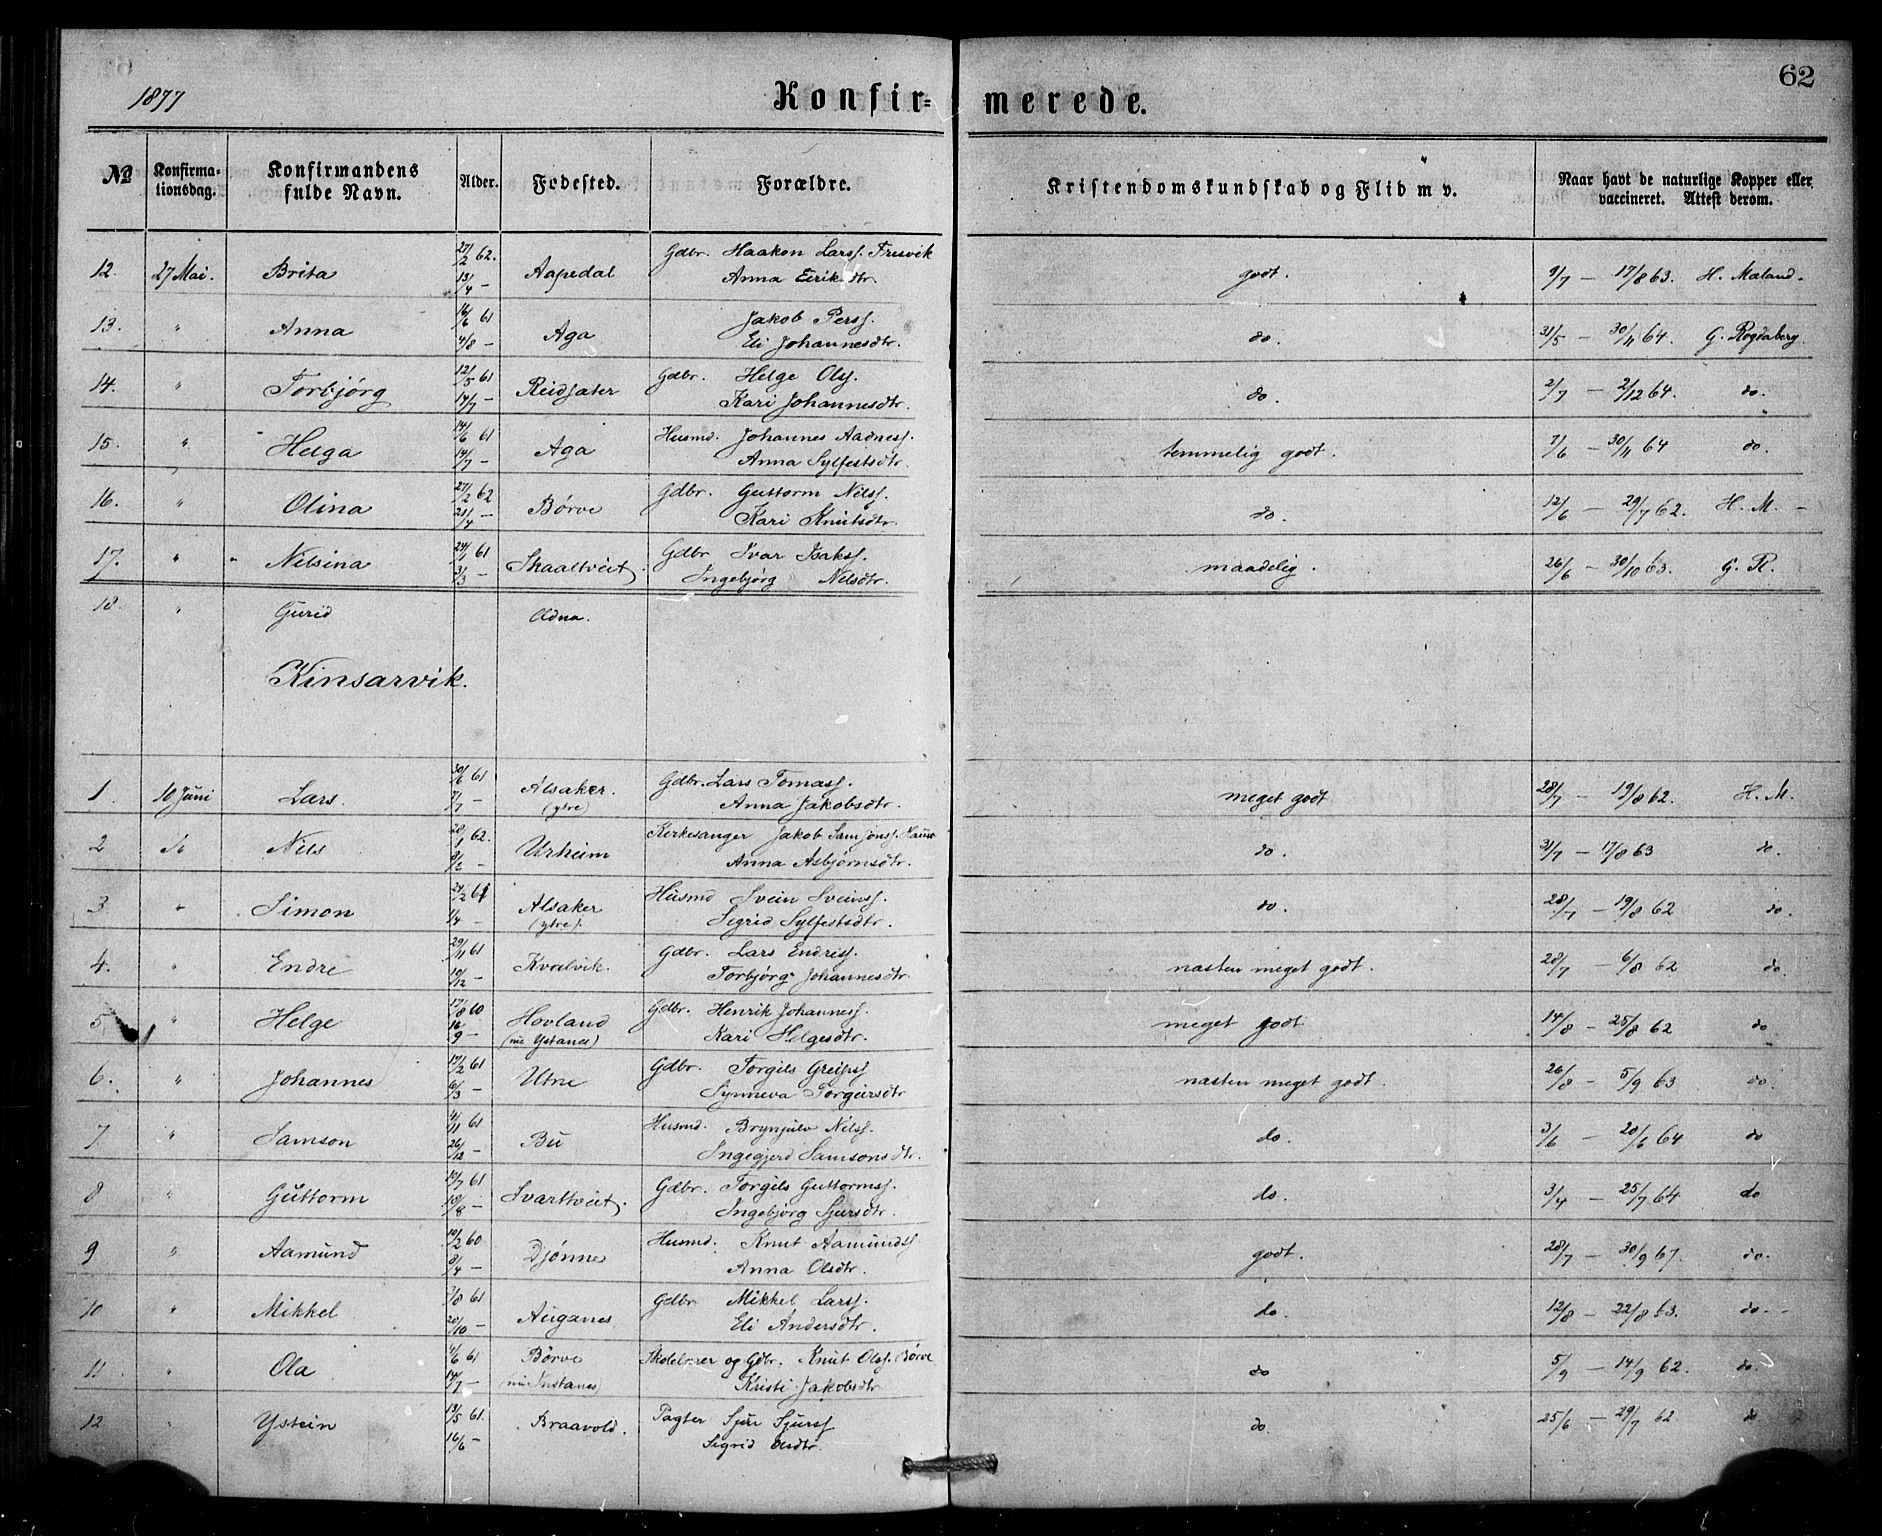 1877 Konfirmerede. 62
№ Konfirmationsdag. Konfirmandens fulde Navn. Alder. Fødested. Forældre. Kristendomskundskab og Flid m v. Naar havt de naturlige Kopper eller vaccineret. Attest derom.
12. 27 Mai. Brita 27/2 62. 13/4 – Aapedal Gdbr. Haakon Larss. Fresvik godt. 9/7 – 17/8 63. H. Mæland.
Anna Eiriksdtr.
13. " Anna 16/6 61 4/8 – Aga Jakob Perss. do. 31/5 – 30/11 64. G. Rogdaberg.
Eli Johannesdtr.
14. " Torbjørg 12/5 61 14/7 – Reidsæter Gdbr. Helge Olss. do. 2/7 – 2/12 64. do.
Kari Johannesdtr.
15. " Helga 14/6 61 14/7 – Aga Husmd. Johannes Aadness. temmelig godt. 7/6 – 30/11 64 do.
Anna Sylfestsdtr.
16. " Olina 27/2 62 21/4 – Børve Gdbr. Guttorm Nilss. do. 12/6 – 29/7 62. H. M. –
Kari Knutsdtr.
17. " Nilsina 24/1 61 31/3 – Skaaltveit Gdbr Ivar Isakss. maadelig. 26/6 – 30/10 63. G. R.
Ingebjørg Nilsdtr.
18. " Gurid Odna.
Kinsarvik.
1. 10 Juni Lars. 30/6 61 7/7 – Alsaker. (ytre) Gdbr. Lars Tomass. meget godt 28/7 – 19/8 62. H. M.
Anna Jakobsdtr.
2 Nils 1 62. – Urheim Kirkesanger Jakob Samsonss. do. 31/7 – 17/8 63 do.
Anna Asbjørnsdtr.
3 " Simon 24/2 61 1/4 – Alsaker (ytre). Husmd Svein Sveinss. do. 28/7 – 19/8 62 do.
Sigrid Sylfestsdtr.
4. " Endre 29/11 61 10/12 – Kvalvik. Gdbr. Lars Endress. næsten meget godt. 28/7 – 6/8 62 do.
Torbjørg Johannesdtr
5 " Helge 17/8 60 16/9 – Hovland (nu Ystanes) Gdbr. Henrik Johanness. meget godt 14/8 – 25/8 62 do
Kari Helgesdtr.
6. " Johannes 17/2 61 6/3 – Utne Gdbr. Torgils Greipss næsten meget godt. 26/8 – 5/9 63 do.
Synneva Torgeirsdtr
7 " Samson 4/11 61 26/12 – Bu Husmd. Brynjulv Nilss. do. 3/6 – 20/6 64 do
Ingegjerd Samsonsdtr.
8 " Guttorm 10/7 61 18/8 – Svarttveit. Gdbr. Torgils Guttormss. do. 3/4 – 25/7 64 do
Ingebjørg Sjursdtr.
9 " Aamund 10/2 60 8/4 – Djønne Husmd. Knut Aamundss godt. 28/7 – 30/9 67. do.
Anna Olsdtr.
10 " Mikkel 3/8 61 20/10 – Auganes Gdbr Mikkel Larss. do 12/8 – 22/8 63. do. –
Eli Andersdtr.
11 " Ola 4/6 61 14/7 – Børve Skolelærer og Gdbr. Knut Olss. Børve do 5/9 – 14/9 62. do.
Kristi Jakobsdtr
12 " Ystein 13/5 61. 16/6 – Braavold. Pagter Sjur Sjurss do. 25/6 – 29/7 62. do
Sigrid Olsdtr.